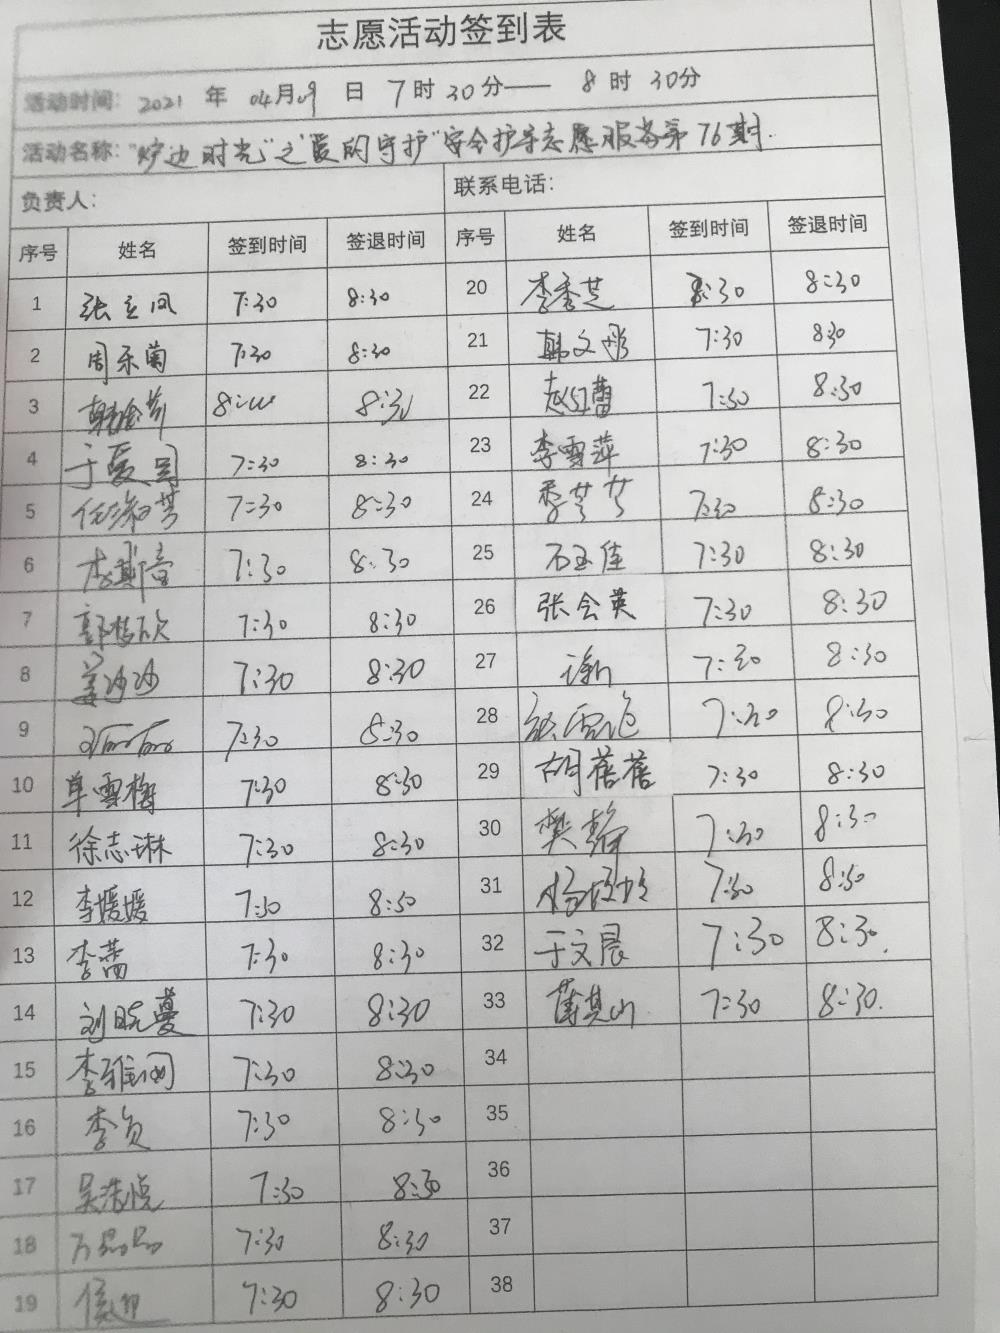 志愿活动签到表
活动时间：2021 年 04月09 日 7时30分—— 8时 30分
活动名称："炉边时光"之"爱的守护"安全护学志愿服务第76期.
负责人： 联系电话：
序号 姓名 签到时间 签退时间 序号 姓名 签到时间 签退时间
1 张立凤 7:30 8:30 20 李秀芝 8:30 8:30
2 周乐菊 7:30 8:30 21 韩文彤 7:30 8:30
3 8:30 22 赵红蕾 7:30 8:30
4 于爱 7:30 8:30 23 李雪萍 7:30 8:30
5 任淑芳 7:30 8:30 24 季芳芳 7:30 8:30
6 李斯 7:30 8:30 25 石玉佳 7:30 8:30
7 郭梅欣 7:30 8:30 26 张会英 7:30 8:30
8 姜沙沙 7:30 8:30 27 7:30 8:30
9 7:30 8:30 28 7:30 8:30
10 单雪梅 7:30 8:30 29 胡蓓蓓 7:30 8:30
11 徐志琳 7:30 8:30 30 樊静 7:30 8:30
12 李媛媛 7:30 8:30 31 7:30 8:30
13 李茜 7:30 8:30 32 于文晨 7:30 8:30.
14 刘晓蔓 7:30 8:30 33 薛其山 7:30 8:30.
15 李雅 7:30 8:30 34
16 李贞 7:30 8:30 35
17 吴浩悦 7:30 8:30 36
18 万晶晶 7:30 8:30 37
19 7:30 8:30 38